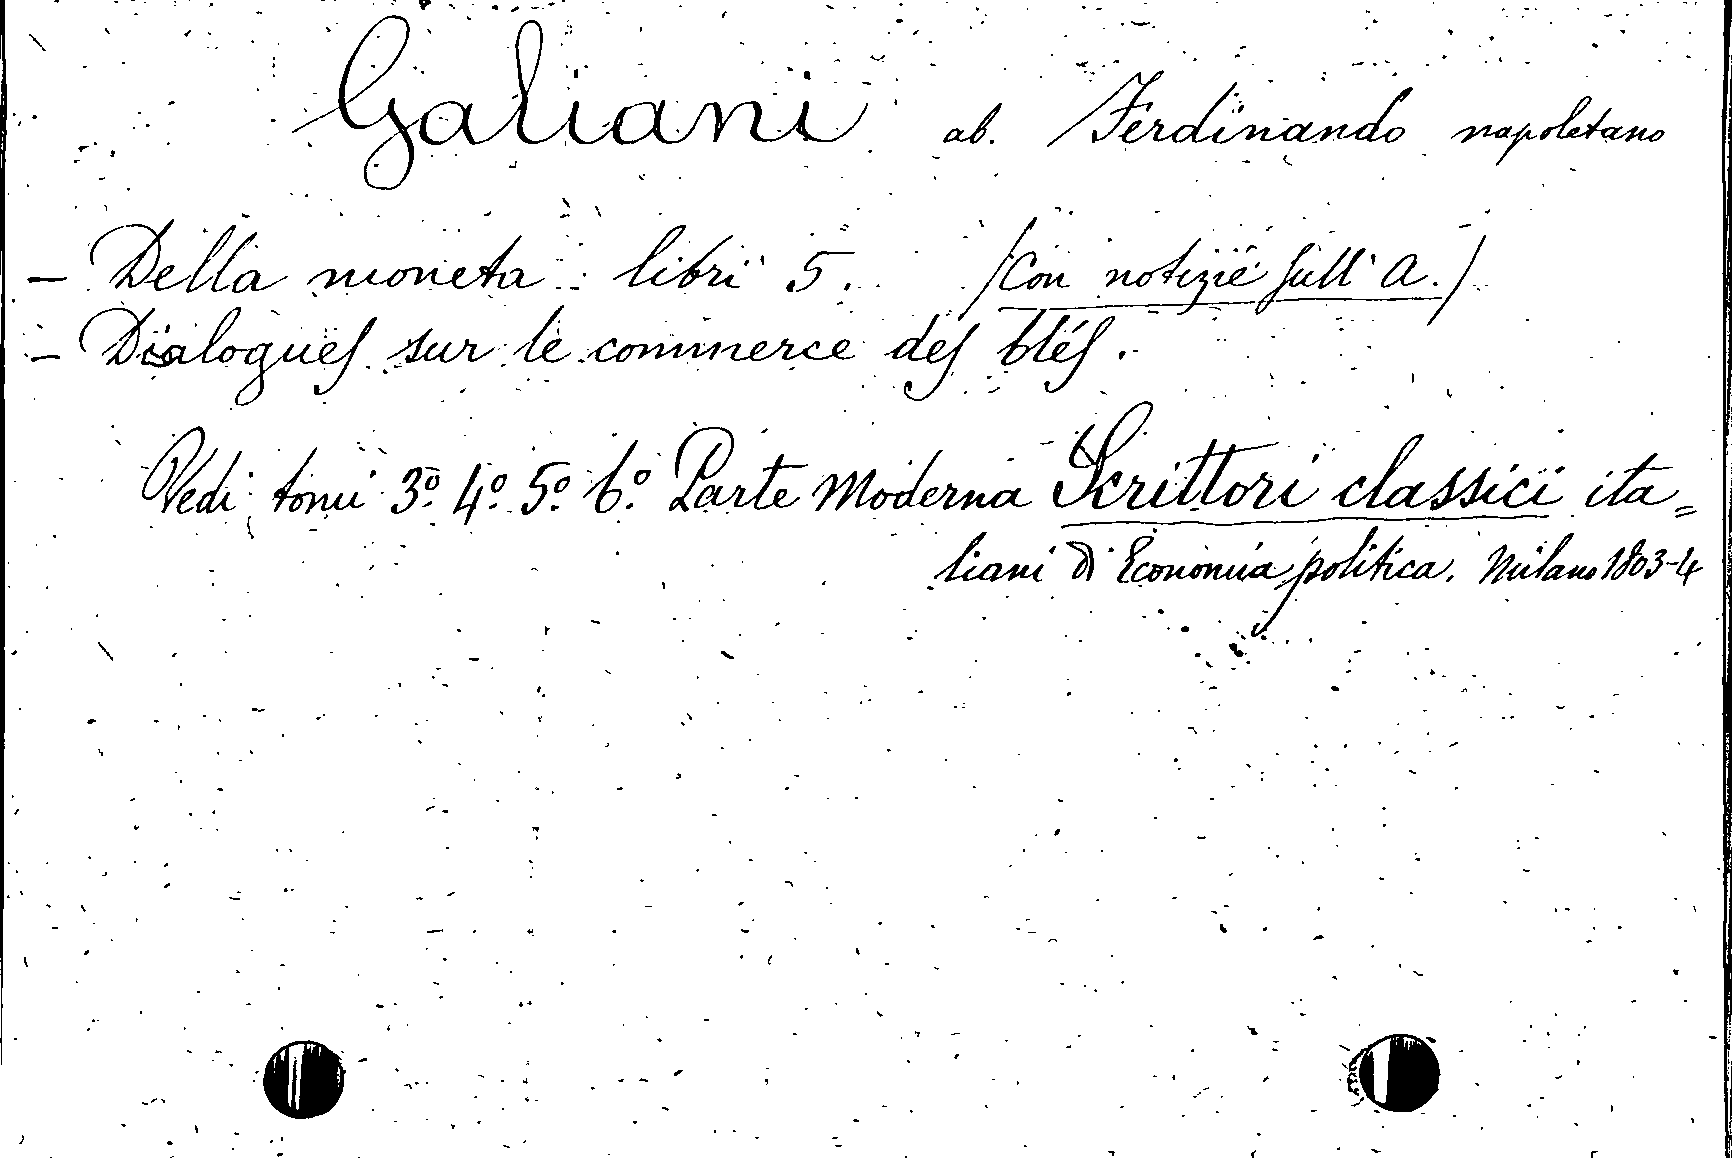 Galiani ab. Ferdinando napoletano
- Della moneta : libri 5. (Con notizie sull' A.)
- Dialogues sur le commerce des blés.
Vedi tomi 3º 4º 5º 6º Parte Moderna Scrittori classici ita=
liani di Economia politica. Milano 1803-4